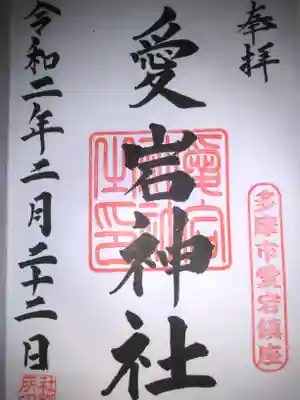 奉拝
多摩市愛宕鎮座
愛宕神社
令和二年二月二十二日